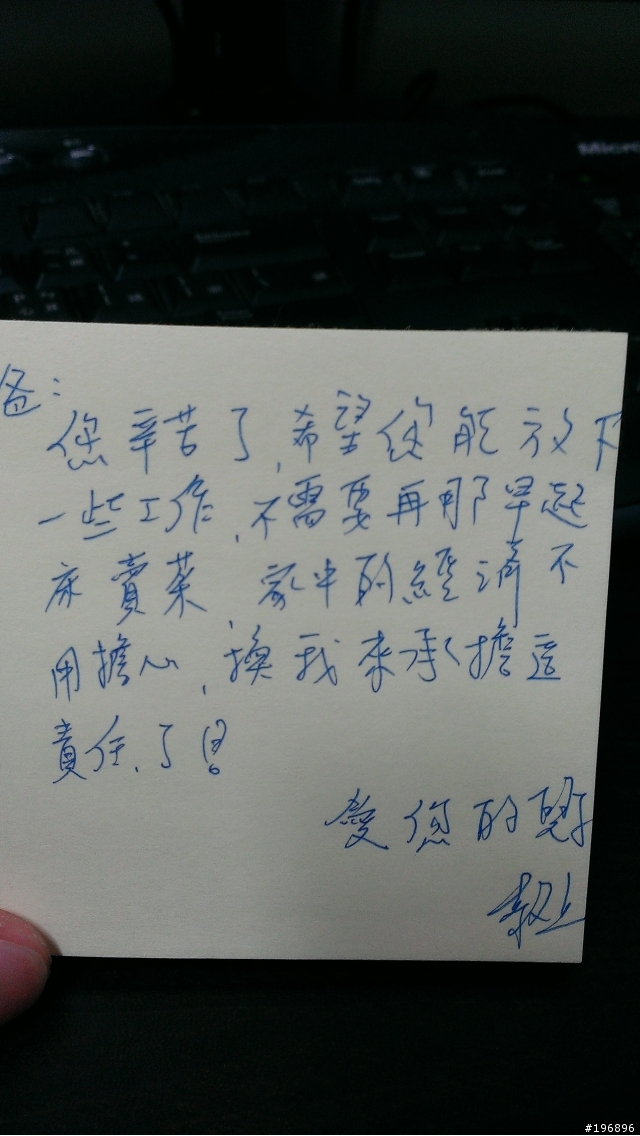 Micro
爸：
您辛苦了,希望您能放下
一些工作,不需要再那早起
床賣菜,家中的經濟不
用擔心,換我來承擔這
責任了!
愛您的
敬上
#196896